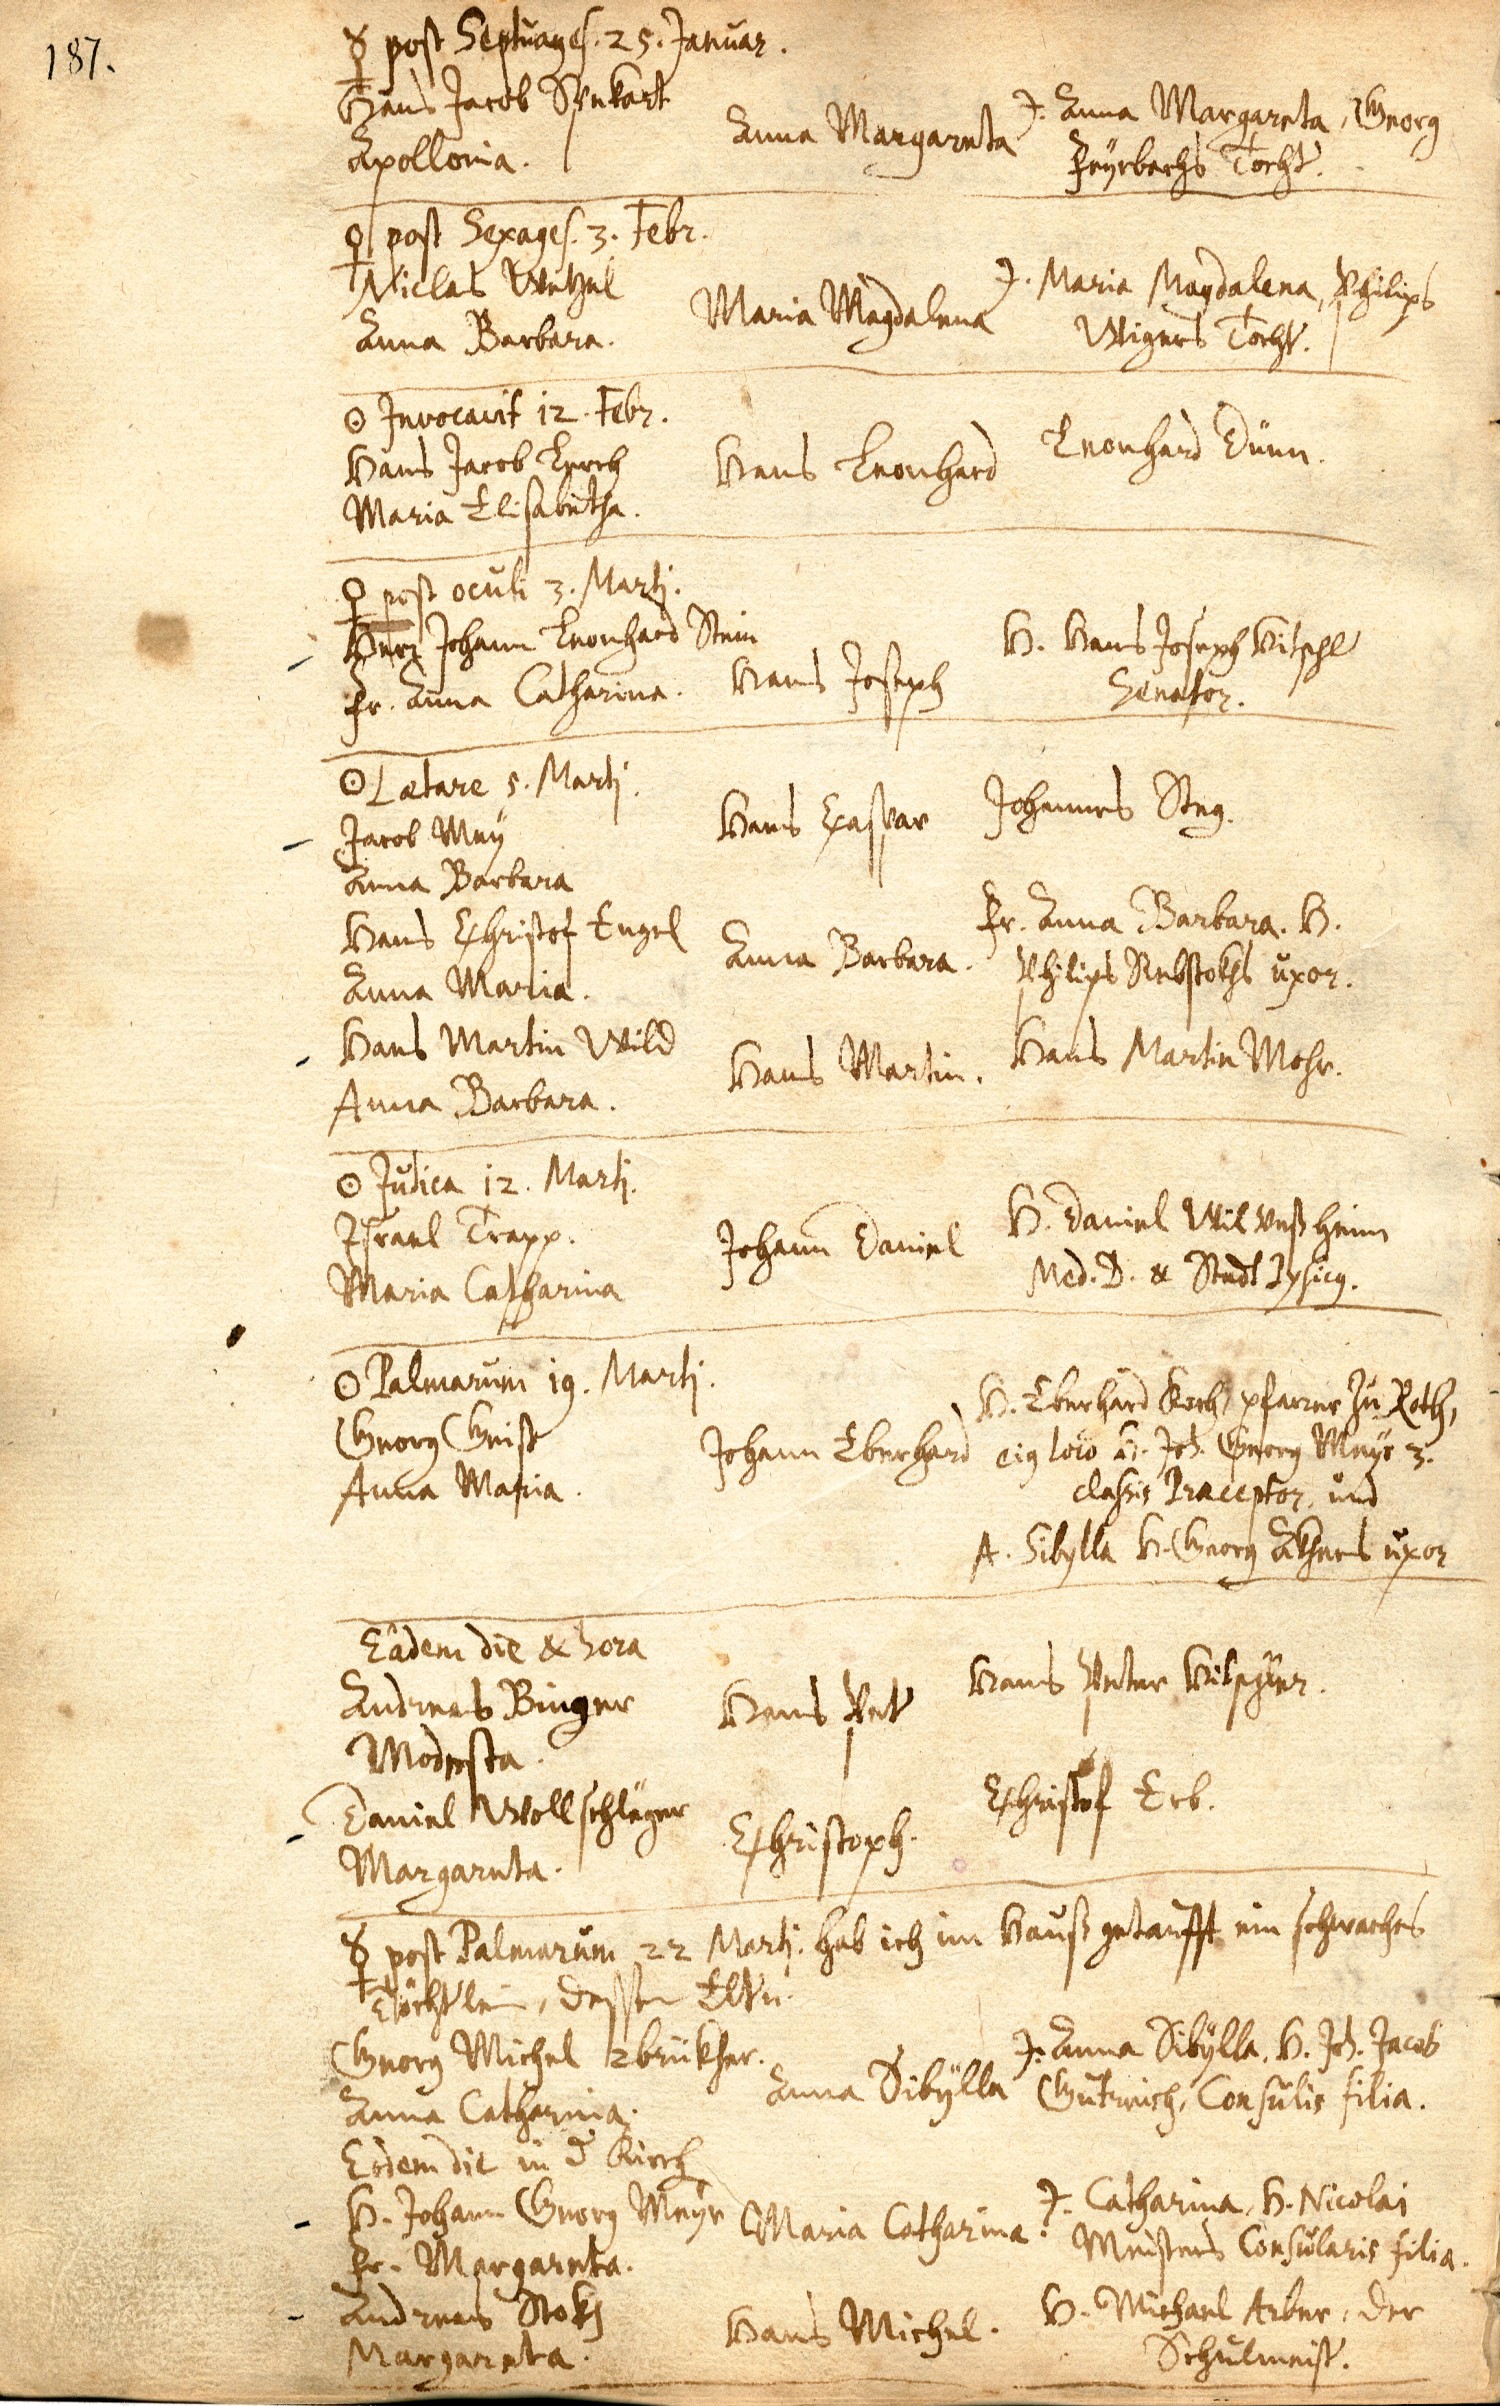 187.
☿ post Septuages. 25. Januar.
Hans Jacob Spekart
Apollonia.
Anna Margareta
J. Anna Margareta, Georg
Feyrbachs Tocht.
♀ post Sexages. 3. Febr.
Niclas Wetzel
Anna Barbara.
Maria Magdalena
J. Maria Magdalena, Philips
Wigers Tocht.
☉ Invocavit 12. Febr.
Hans Jacob Lerch
Maria Elisabetha.
Hans Leonhard
Leonhard Dünn.
♀ post oculi 3. Martj.
Herr Johann Leonhard Stein
Fr. Anna Catharina.
Hans Joseph
H. Hans Joseph
Senator.
☉ Lætare 5. Martj.
Jacob Mey
Anna Barbara
Hans Caspar
Johannes Steg.
Hans Christof Engel
Anna Maria.
Anna Barbara.
Fr. Anna Barbara. H.
Philips Rebstokhs uxor.
Hans Martin Wild
Anna Barbara.
Hans Martin.
Hans Martin Mohr.
☉ Judica 12. Martj.
Israel Trapp.
Maria Catharina
Johann Daniel
H. Daniel
Med. D. & Stadt
☉ Palmarum 19. Martj.
Georg Geist
Anna Maria.
Johann Eberhard
H. Eberhard Koch, pfarrer zu Roth,
loco H. Joh. Georg Meyr 3.
classis Præceptor, und
A. Sibylla H. Georg uxor
Eâdem die & hora
Andreas Binger
Modesta.
Hans Pet
Hans Peter
Daniel Wollschläger
Margareta.
Christoph.
Christof Erb.
☿ post Palmarum 22 Martj. hab ich im Hauß getaufft ein schwaches
Töchtlein, dessen Eltn.
Georg Michel 2brükher.
Anna Catharina.
Anna Sibÿlla
J. Anna Sibÿlla, H. Joh. Jacob
Gutreich, Consulis filia.
Eodem die in d Kirch
H. Johann Georg Meyr
Fr. Margareta.
Maria Catharina.
J. Catharina, H. Nicolai
Meisters Consularis filia.
Andreas Stokh
Margareta.
Hans Michel.
H. Michael Arber, der
Schulmeist.